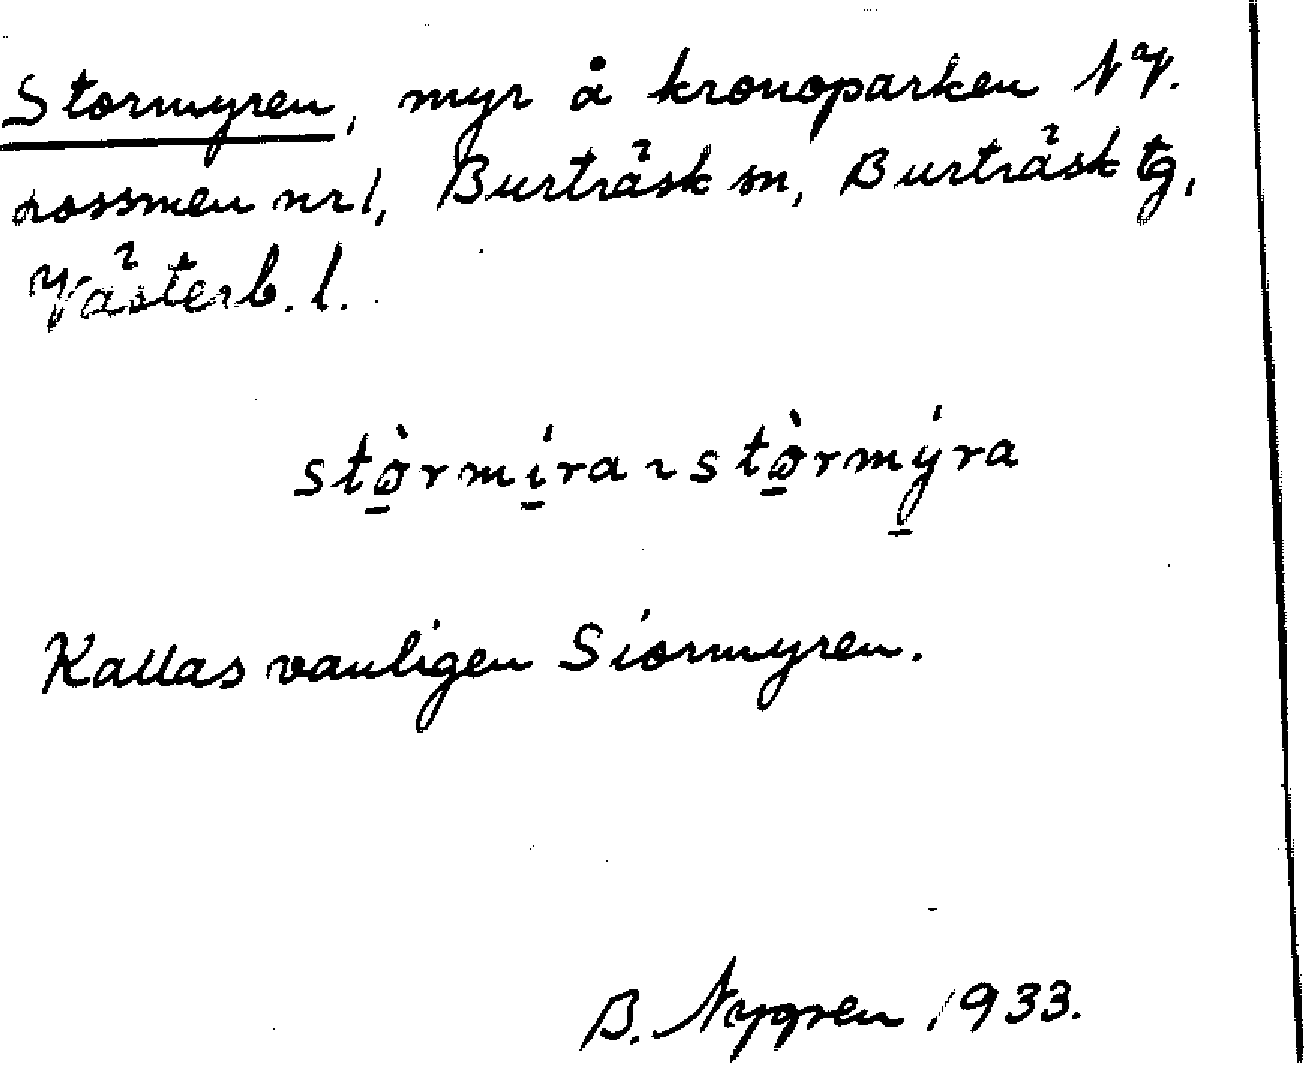 Stormyren, myr å kronoparken NV.
rossmen nr 1, Burträsk sn, Burträsk tg,
Västerb. l.
stò̠rmí̠ra ~ stò̠rmý̠ra
Kallas vanligen Stormyren.
B. Nygren 1933.